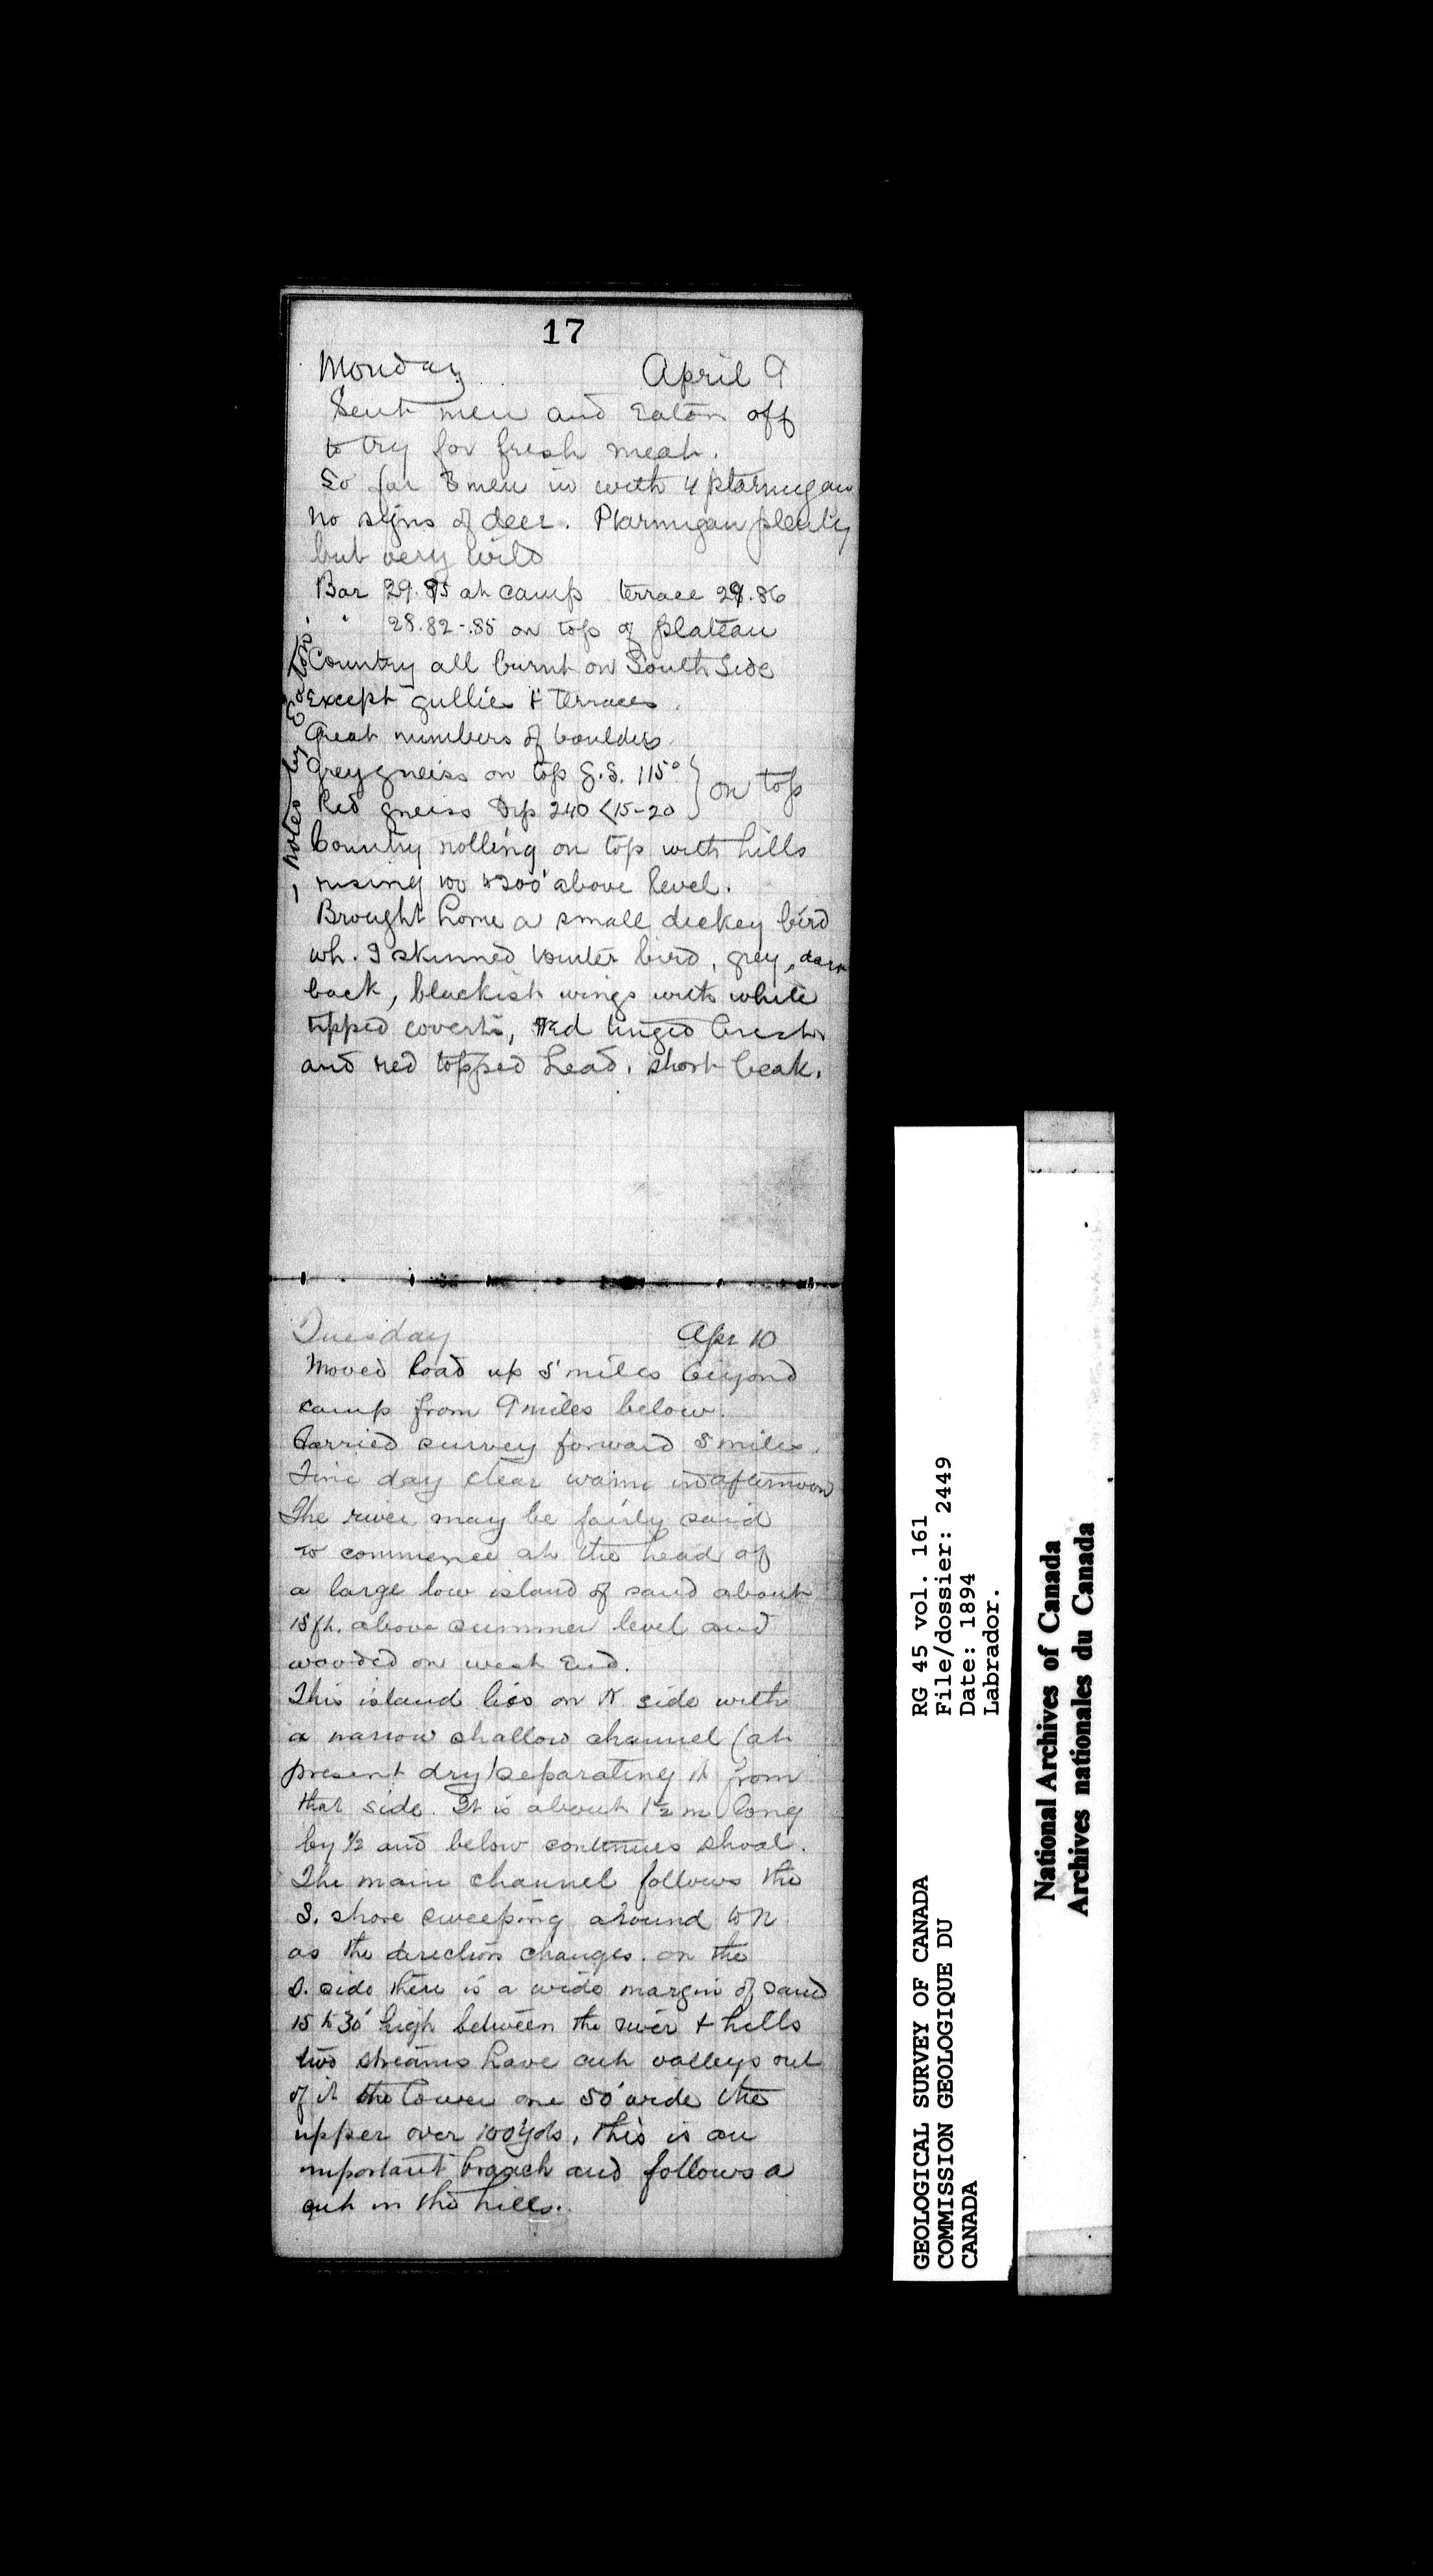 17
Monday April 9
Sent men and Eaton off
to try for fresh meat.
So far 3 men in with 4 ptarmigan
no signs of deer. Ptarmigan plenty
but very wild
Bar 29.95 at camp terrace 29.86
" 28.82-.85 on top of plateau
Country all burnt on South Side
Except gullies & terraces.
Great numbers of boulders.
Grey gneiss on top G.S. 115° } on top
Red gneiss Dip 240 <15-20
Country rolling on top with hills
rising 100 to 200' above level.
- notes by Eaton.
Brought home a small dickey bird
wh. I skinned winter bird, grey, dark
back, blackish wings with white
tipped coverts, red tinged breast
and red topped head. short beak.
Tuesday Apr 10
Moved load up 5 miles beyond
camp from 9 miles below.
Carried survey forward 5 miles.
Fine day clear warm in afternoon
The river may be fairly said
to commence at the head of
a large low island of sand about
15 ft. above summer level and
wooded on west End.
This island lies on N side with
a narrow shallow channel (at
present dry) separating it from
that side. It is about 1½ m long
by ½ and below continues shoal.
The main channel follows the
S. shore sweeping around to N
as the direction changes. on the
S. side there is a wide margin of sand
15 to 30' high between the river & hills
two streams have cut valleys out
of it the lower one 50' wide the
upper over 100 yds, this is an
important branch and follows a
cut in the hills.
RG 45 vol. 161
File/dossier: 2449
Date: 1894
Labrador.
GEOLOGICAL SURVEY OF CANADA
COMMISSION GEOLOGIQUE DU
CANADA
National Archives of Canada
Archives nationales du Canada